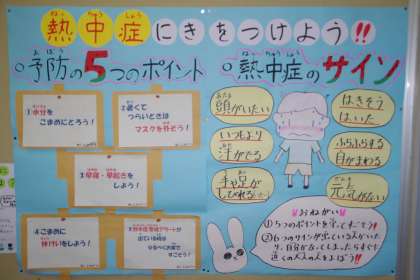 熱中症にきをつけよう!!
○予防の5つのポイント
①水分を
こまめにとろう!
②暑くて
つらいときは
マスクを外そう!
③早寝・早起きを
しよう!
④こまめに
休けいをしよう!
出ている時は
すごそう!
○熱中症のサイン
頭がいたい
はきそう
はいた
いつもより
汗がでる
ふらふらする
目がまわる
手や足が
しびれる
元気がない
おねがい
①5つのポイントを守ってすごそう!
②6つのサインが出ている人がいた
り、自分がなってしまったらすぐに
近くの大人の人をよぼう!